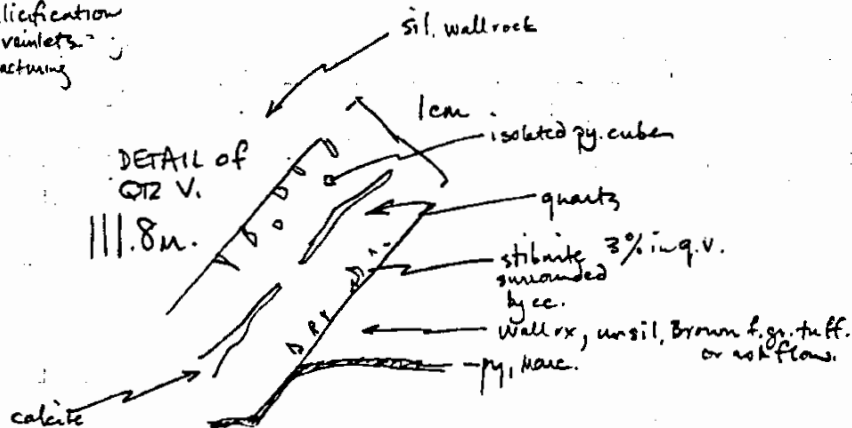 licification
veinlets
acturing
sil. wallrock
1cm.
isolated py. cubes
DETAIL of
QTZ V.
111.8m.
quartz
stibnite 3% in q.v.
surrounded
by cc.
wall rx, unsil, Brown f.gr. tuff.
or ash flow.
py, marc.
calcite